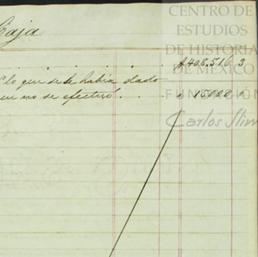 Caja
CENTRO DE
ESTUDIOS
DE HISTORIA
DE MÉXICO
FUNDACIÓN
Carlos Slim
$408.516 3
lo que se le había dado
no se efectuó. " 15000 "